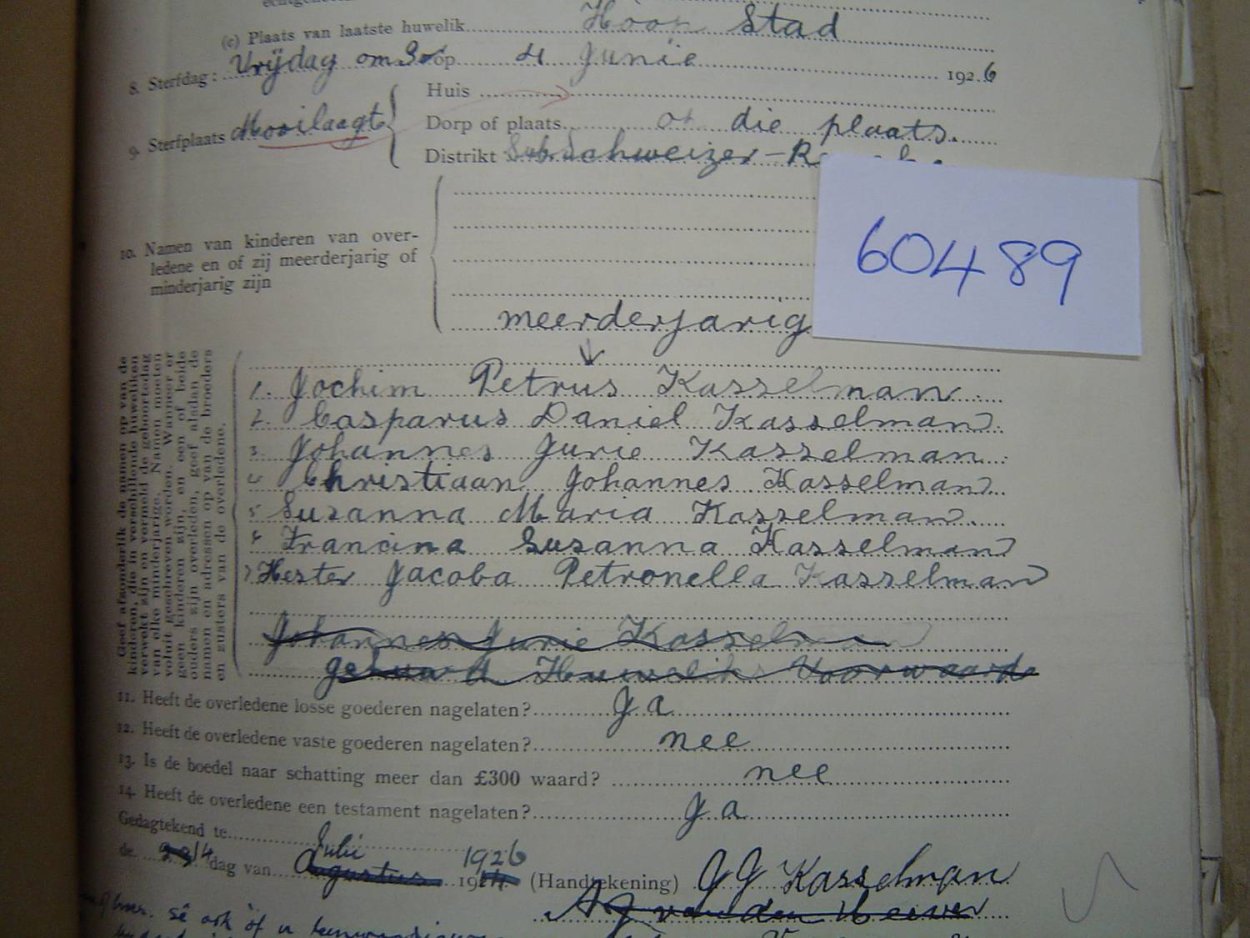 (c) Plaats van laatste huwelik Hoop Stad
8. Sterfdag: Vrijdag om op 4 Junie 1926
9. Sterfplaats Mooilaagte
Huis
Dorp of plaats op die plaats.
Distrikt Sub. Schweizer-R
10. Namen van kinderen van over-
ledene en of zij meerderjarig of
minderjarig zijn
60489
meerderjarig
Geef afzonderlik de namen op van de
kinderen, die in verschillende huweliken
verwekt zijn en vermeld de geboortedag
van elke minderjarige. Namen moeten
voluit geschreven worden. Wanneer er
geen kinderen zijn, en een of beide
ouders zijn overleden, geef alsdan de
namen en adressen op van de broeders
en zusters van de overledene.
1. Jochim Petrus Kasselman
2. Casparus Daniel Kasselman
3. Johannes Jurie Kasselman
4. Christiaan Johannes Kasselman
5. Susanna Maria Kasselman
Francina Susanna Kasselman
7 Hester Jacoba Petronella Kasselman
Johannes Jurie Kasselman
Huweliks Voorwaarde
11. Heeft de overledene losse goederen nagelaten? Ja
12. Heeft de overledene vaste goederen nagelaten? nee
13. Is de boedel naar schatting meer dan £300 waard? nee
14. Heeft de overledene een testament nagelaten? Ja
Gedagtekend te
de 14 dag van Julie Agustus 1926 19 (Handtekening) J J Kasselman
van den Heever
sê ook of u